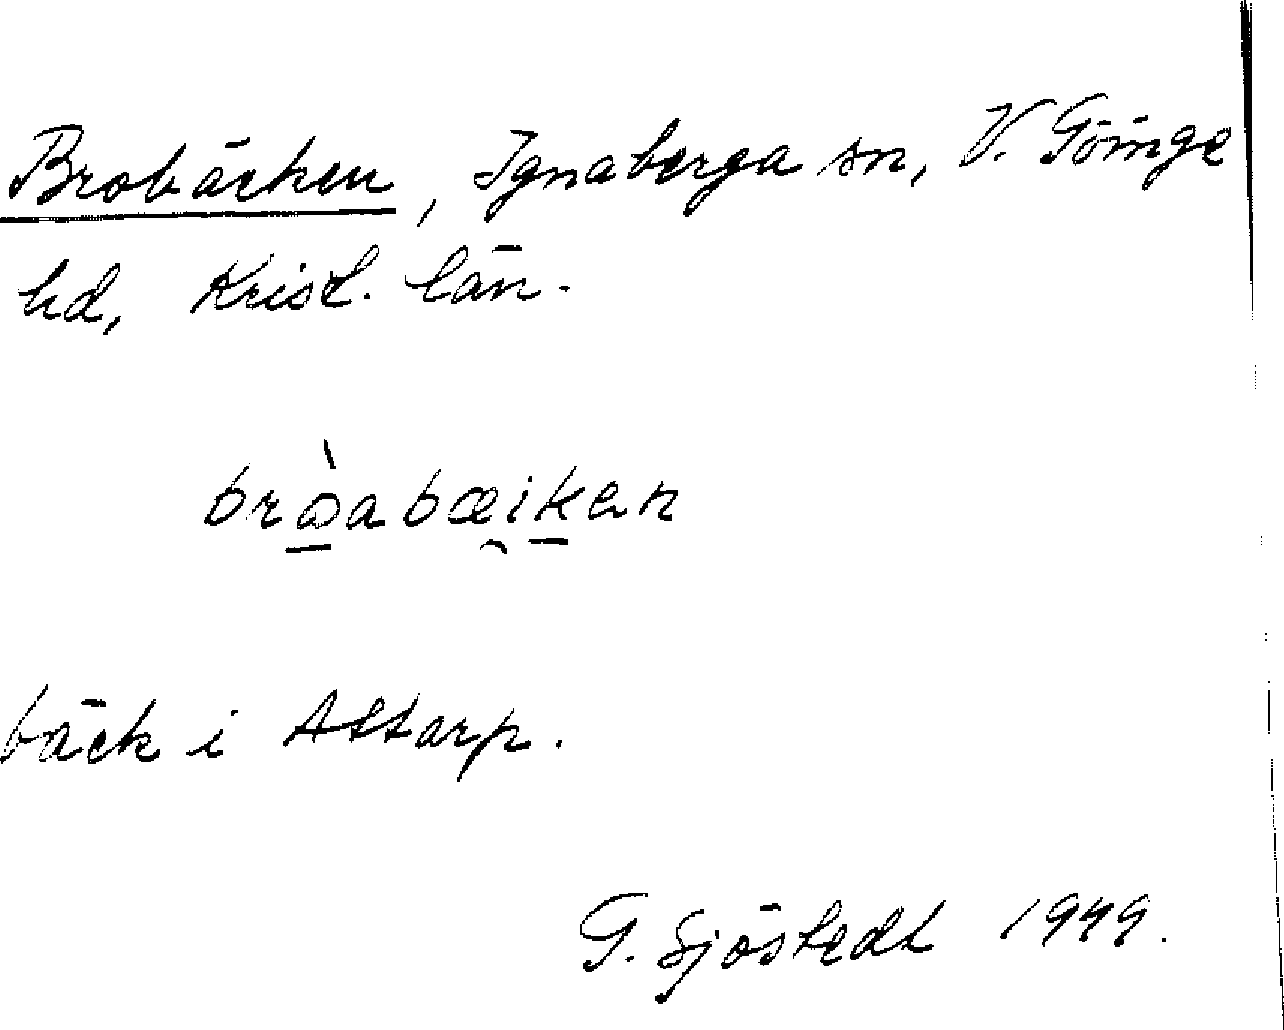 Brobäcken, Ignaberga sn, V. Göinge
hd, Krist. län.
brɷ̠̀abæi̯k̠en
bäck i Attarp.
G. Sjöstedt 1949.